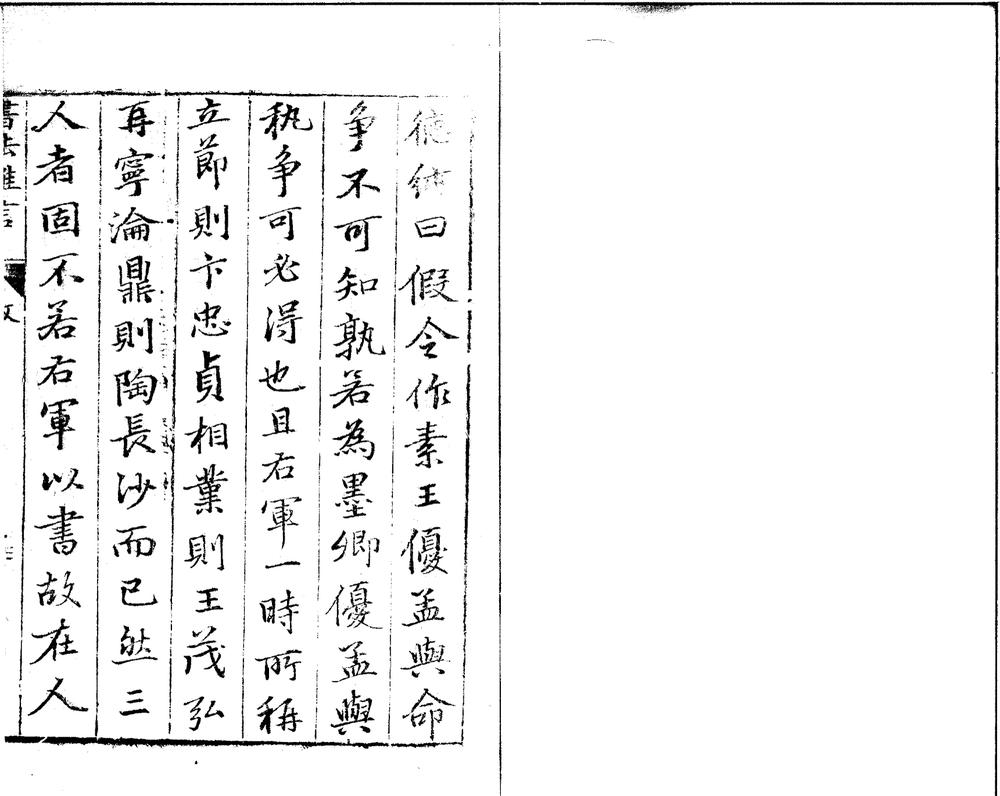 德純曰假令作素王優孟與命
争不可知孰若為墨卿優孟與
執争可必得也且右軍一時所稱
立節則卞忠貞相業則王茂弘
再寧淪鼎則陶長沙而已然三
人者固不若右軍以書故在人
書法雅言